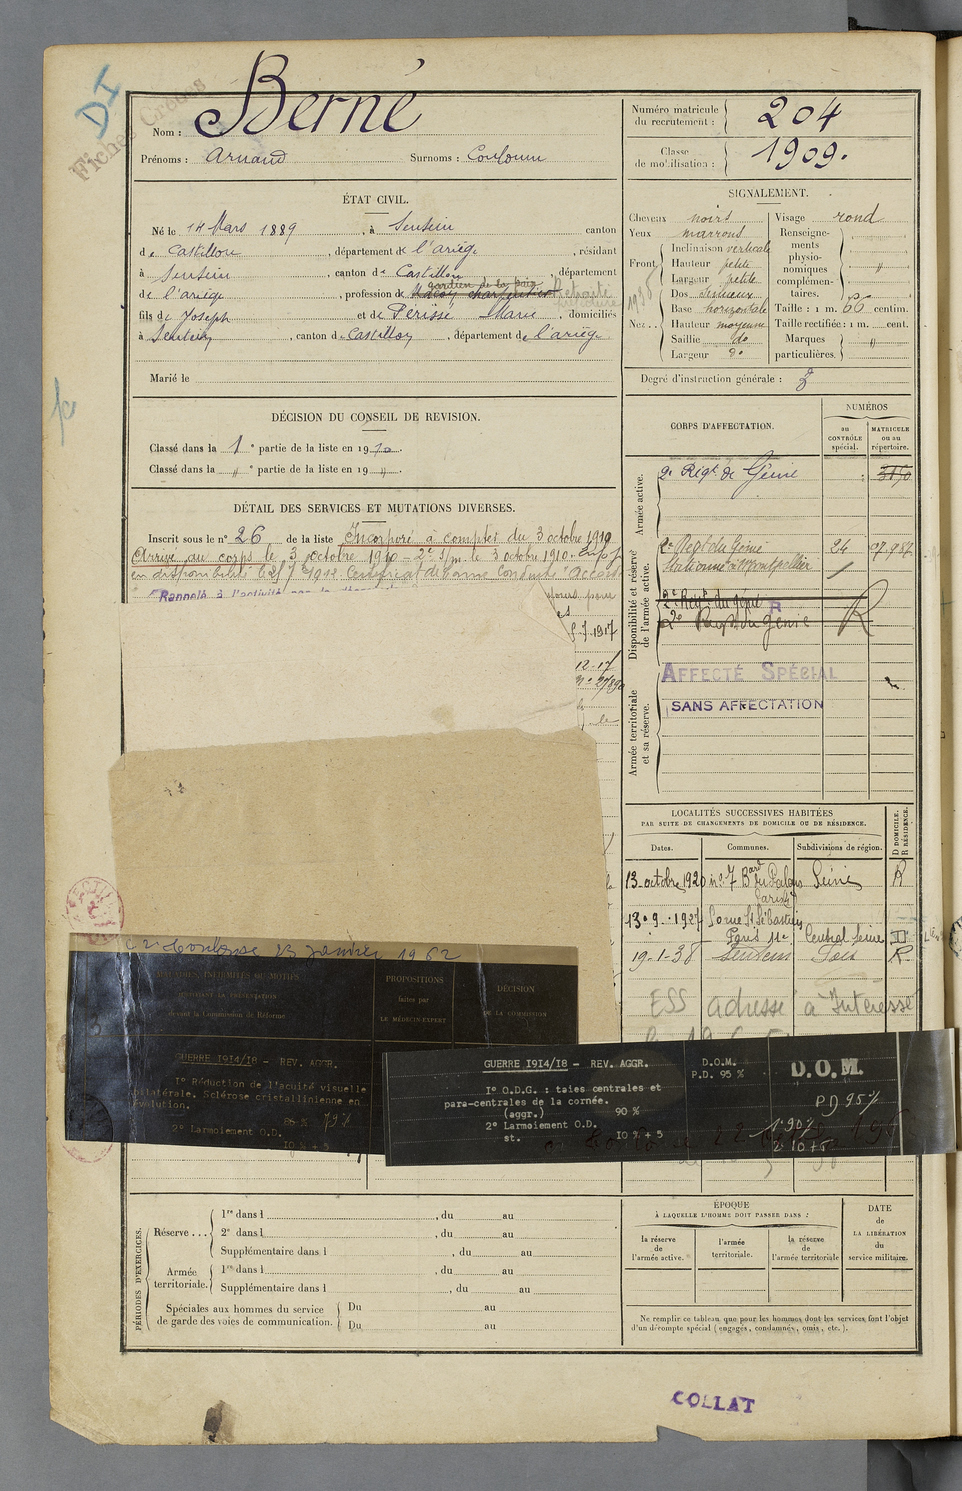 DI
Fiches Créées
Nom : Berné
Prénoms : Arnaud Surnoms : Couloum
Numéro matricule du recrutement : 204
Classe de mobilisation : 1909.
ÉTAT CIVIL.
Né le 14 Mars 1889, à Sentein canton
de Castillon, département de l'ariège, résidant
à Sentein, canton de Castillon, département
de l'ariège, profession de gardien de la paix Retraité
fils de Joseph et de Périsse Marie, domiciliés
à Sentein, canton de Castillon, département de l'ariège
Marié le
SIGNALEMENT.
Cheveux noirs
Yeux marrons
Front. Inclinaison verticale
Hauteur petite
Largeur petite
Nez.. Dos sinueux
Base horizontale
Hauteur moyenne
Saillie do
Largeur do
Visage rond
Renseignements physionomiques complémentaires. "
Taille : 1 m. 66 centim.
Taille rectifiée : 1 m. cent.
Marques particulières. "
Degré d'instruction générale : 3
DÉCISION DU CONSEIL DE REVISION.
Classé dans la 1e partie de la liste en 1910.
Classé dans la " e partie de la liste en 19 ".
DÉTAIL DES SERVICES ET MUTATIONS DIVERSES.
Inscrit sous le n° 26 de la liste Incorporé à compter du 3 octobre 1910
Arrivé au corps le 3 octobre 1910 = 2e S/m le 3 octobre 1910.
en disponibilité le 25 7bre 1912. Certificat de bonne conduite "Accordé"
Rappelé à l'activité
pour
8-7-1917
12-17
CORPS D'AFFECTATION.
NUMÉROS
au CONTRÔLE spécial.
MATRICULE ou au répertoire.
Armée active.
2e Régt de Génie 3190
Disponibilité et réserve de l'armée active.
2e Régt du Génie 24 07.987
Stationné à Montpellier
2e Régt du génie R
2e Régt du Génie R
Armée territoriale et sa réserve.
AFFECTÉ SPÉCIAL
SANS AFFECTATION
LOCALITÉS SUCCESSIVES HABITÉES
PAR SUITE DE CHANGEMENTS DE DOMICILE OU DE RÉSIDENCE.
Dates. Communes. Subdivisions de région. D DOMICILE. R RÉSIDENCE.
13 octobre 1920 n° 7 Bard du Palais Seine R
Paris
13-9-1927 5 rue St Sébastien
Paris 11e Central Seine
19-1-38 Sentein Foix R
ESS adresse à Intéressé
Toulouse 23 Janvier 1962
MALADIES, INFIRMITÉS OU MOTIFS
MOTIVANT LA PRÉSENTATION
devant la Commission de Réforme
PROPOSITIONS
faites par
LE MÉDECIN-EXPERT
DÉCISION
DE LA COMMISSION
GUERRE 1914/18 - REV. AGGR.
1° Réduction de l'acuité visuelle
bilatérale. Sclérose cristallinienne en
évolution. 80 % 79%
2° Larmoiement O.D. 10 % + 5
GUERRE 1914/18 - REV. AGGR.
1° O.D.G. : taies centrales et
para-centrales de la cornée.
(aggr.) 90 %
2° Larmoiement O.D.
st. 10 % + 5
D.O.M.
P.D. 95 %
D.O.M.
PD 95%
1° 90%
2° 10+5
PÉRIODES D'EXERCICES.
Réserve... 1re dans l , du au
2e dans l , du au
Supplémentaire dans l , du au
Armée territoriale. 1re dans l , du au
Supplémentaire dans l , du au
Spéciales aux hommes du service de garde des voies de communication. Du au
Du au
ÉPOQUE
À LAQUELLE L'HOMME DOIT PASSER DANS :
la réserve de l'armée active.
l'armée territoriale.
la réserve de l'armée territoriale
DATE
de
LA LIBÉRATION
du
service militaire.
Ne remplir ce tableau que pour les hommes dont les services font l'objet
d'un décompte spécial (engagés, condamnés, omis, etc.).
COLLAT